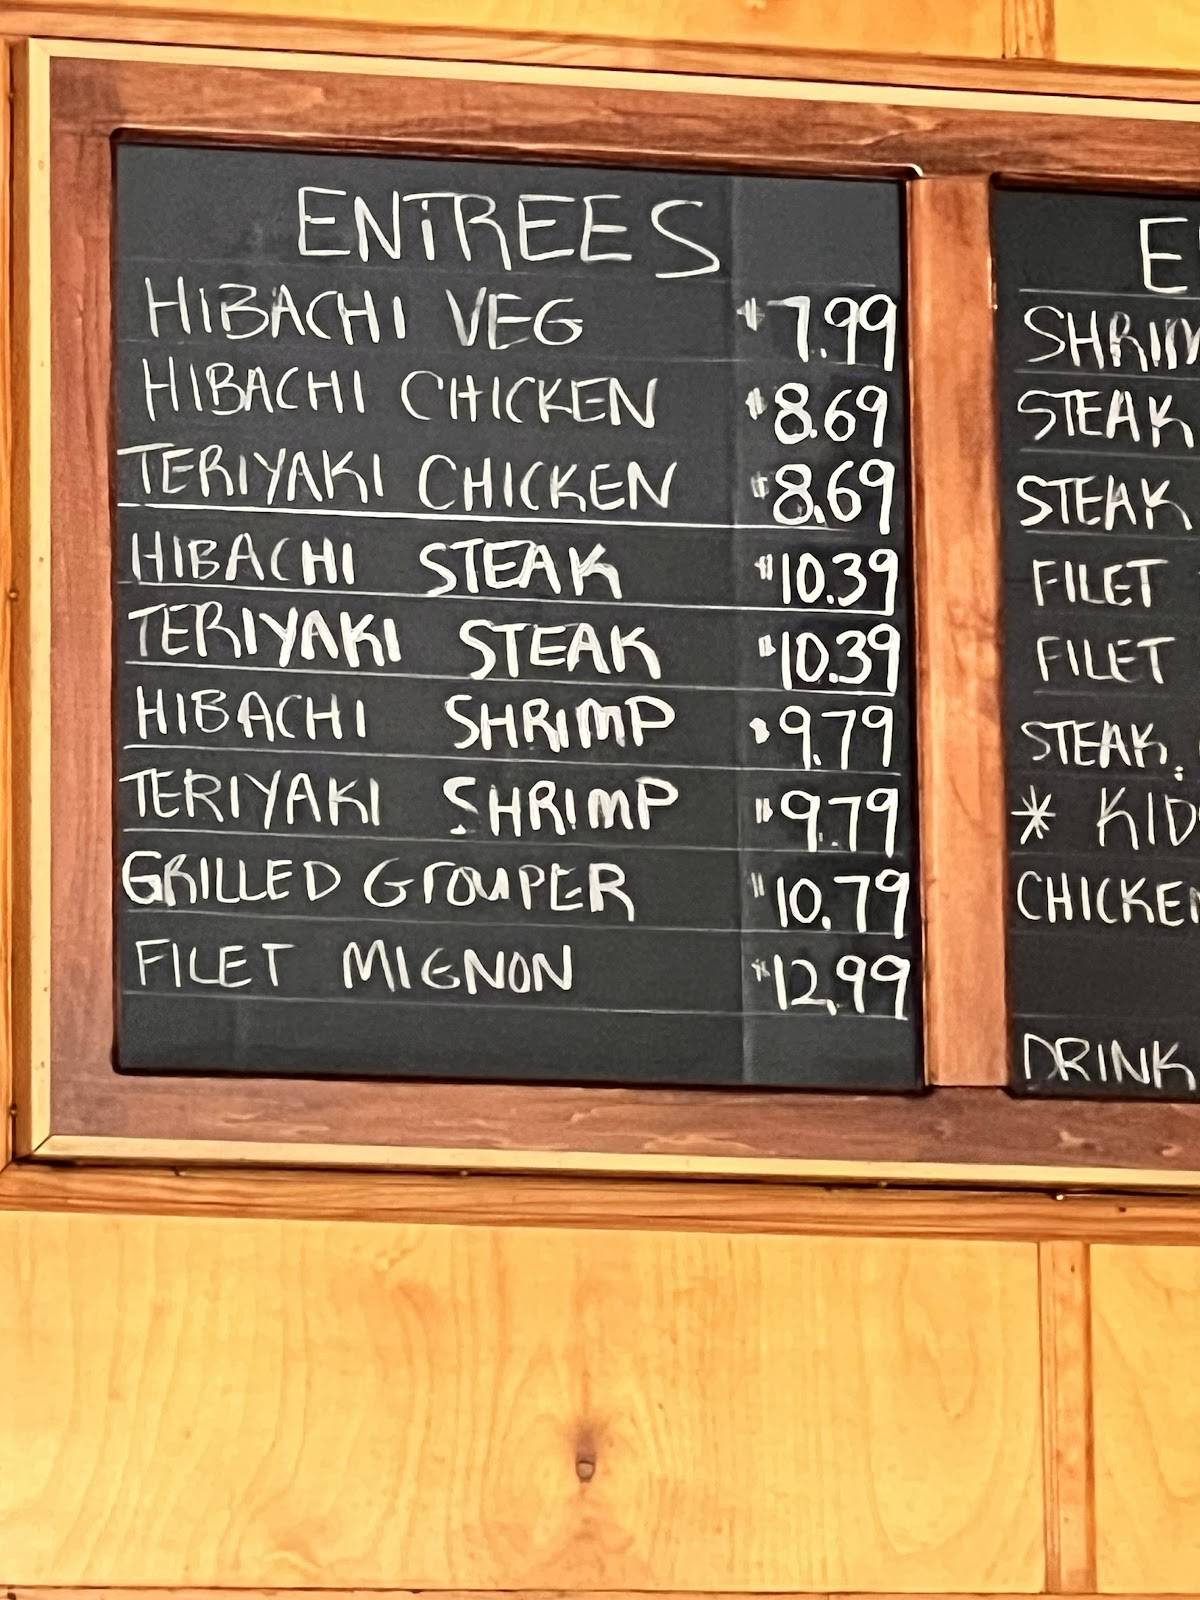 ENTREES
HIBACHI VEG $7.99
HIBACHI CHICKEN $8.69
TERIYAKI CHICKEN $8.69
HIBACHI STEAK $10.39
TERIYAKI STEAK $10.39
HIBACHI SHRIMP $9.79
TERIYAKI SHRIMP $9.79
GRILLED GROUPER $10.79
FILET MIGNON $12.99
STEAK
STEAK
FILET
FILET
STEAK
*